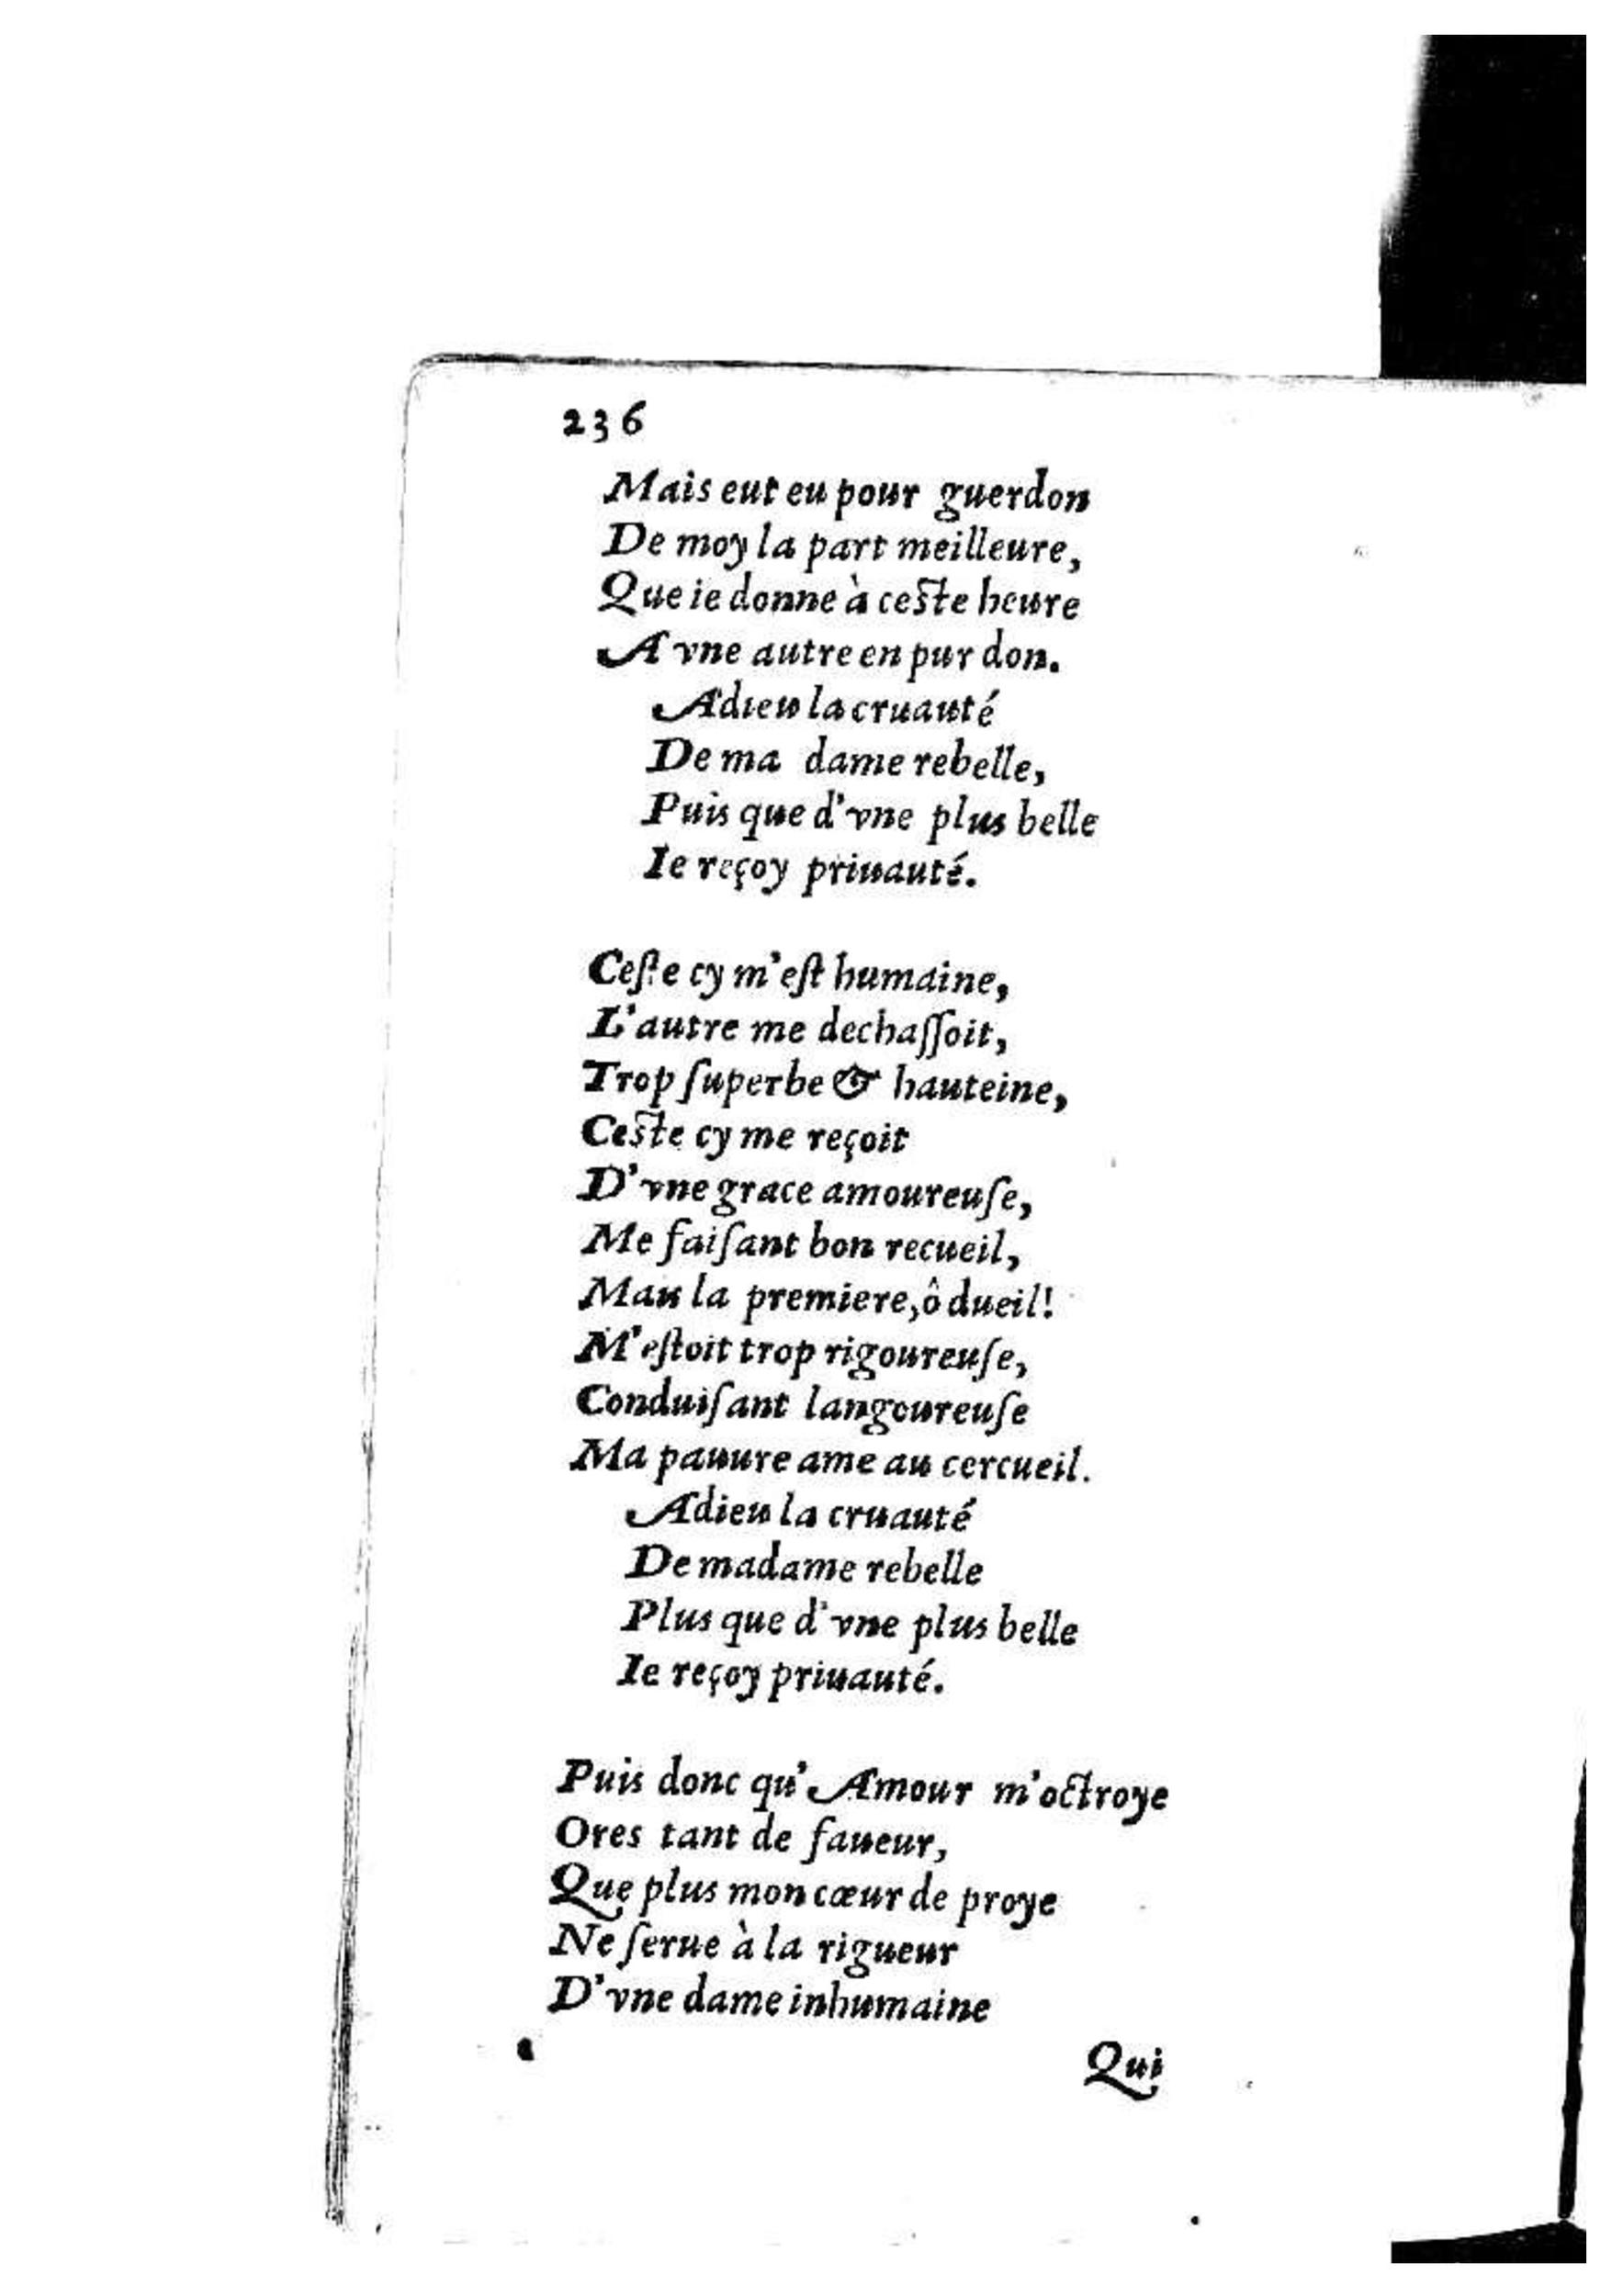 236
Mais eut eu pour guerdon
De moy la part meilleure,
Que ie donne à ceſte heure
A vne autre en pur don.
Adieu la cruauté
De ma dame rebelle,
Puis que d'vne plus belle
Ie reçoy priuauté.
Ceſte cy m'eſt humaine,
L'autre me dechaſſoit,
Trop ſuperbe & hauteine,
Ceſte cy me reçoit
D'vne grace amoureuſe,
Me faiſant bon recueil,
Mais la premiere, ô dueil!
M'eſtoit trop rigoureuſe,
Conduiſant langoureuſe
Ma pauure ame au cercueil.
Adieu la cruauté
De madame rebelle
Plus que d'vne plus belle
Ie reçoy priuauté.
Puis donc qu'Amour m'octroye
Ores tant de faueur,
Que plus mon cœur de proye
Ne ſerue à la rigueur
D'vne dame inhumaine
Qui